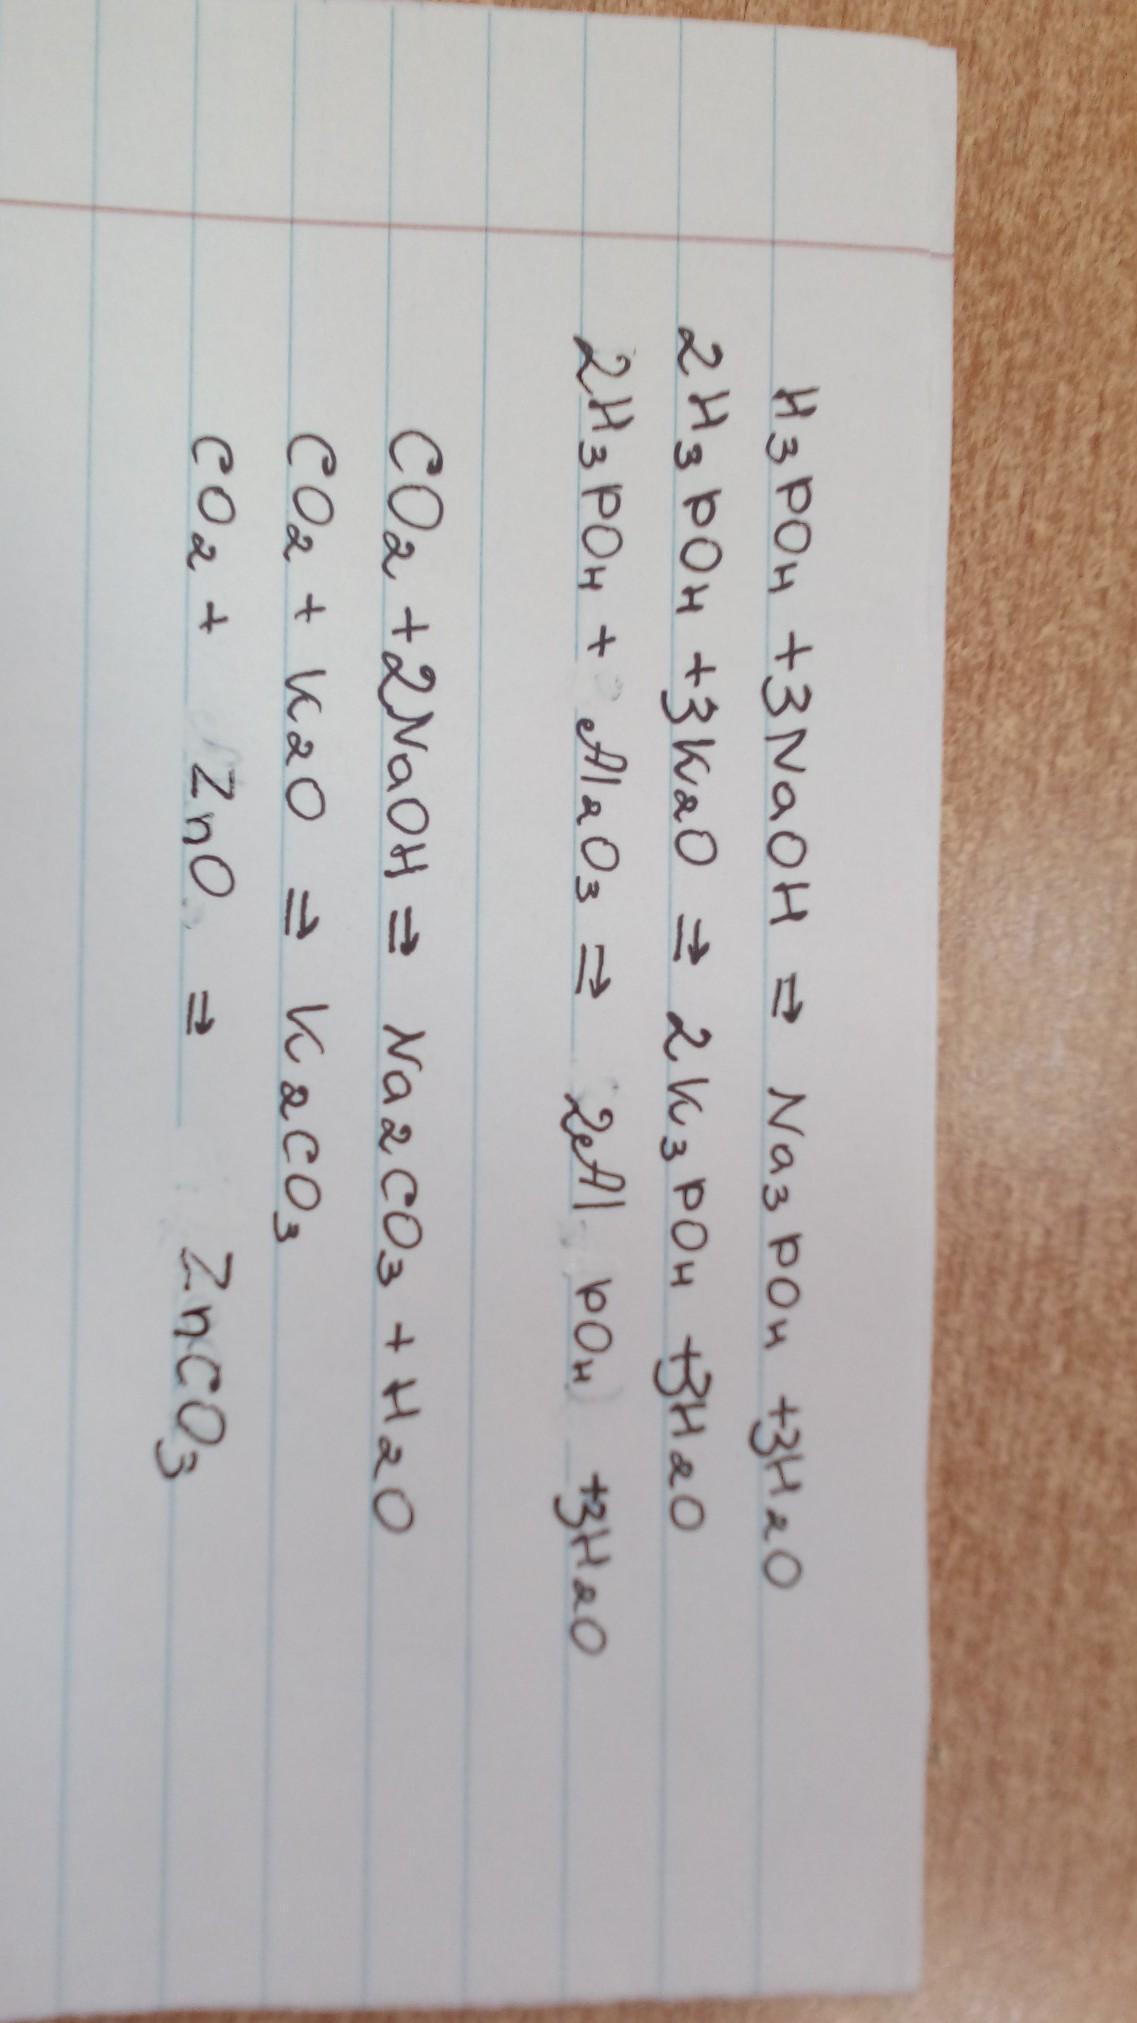 H₃PO₄ + 3NaOH ⇒ Na₃PO₄ + 3H₂O
2H₃PO₄ + 3K₂O ⇒ 2K₃PO₄ + 3H₂O
2H₃PO₄ + Al₂O₃ ⇒ 2Al PO₄ + 3H₂O
CO₂ + 2NaOH ⇒ Na₂CO₃ + H₂O
CO₂ + K₂O ⇒ K₂CO₃
CO₂ + ZnO ⇒ ZnCO₃